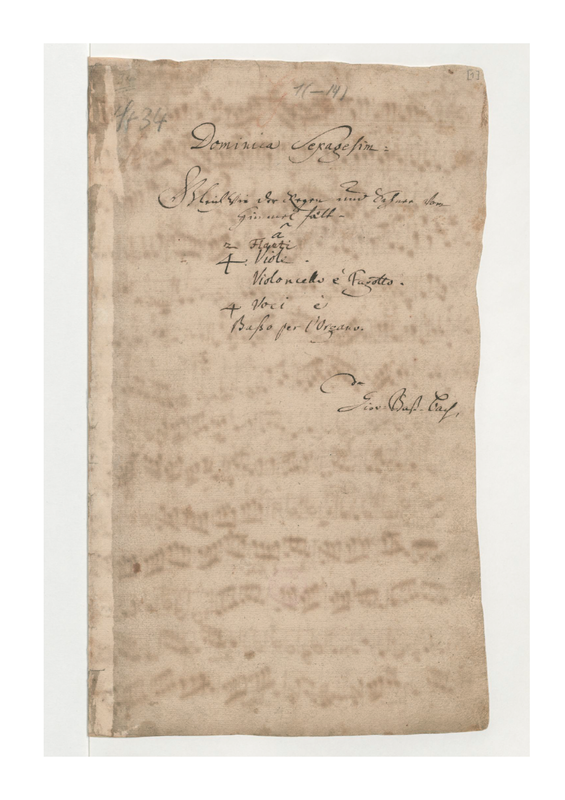 [1]
1(–14)
4+34
Dominica Sexagesim:
Gleich Wie der Regen und Schnee vom
Himmel fällt –
à
2 Flauti
4 Viole.
Violoncello è Fagotto.
4 Voci è
Baßo per l'Organo.
da
Giov. Baß. Bach.